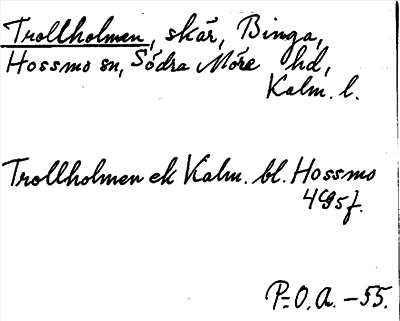 Trollholmen, skär, Binga,
Hossmo sn, Södra Möre hd,
Kalm. l.
Trollholmen ek Kalm. bl. Hossmo
4G5f.
P-O.A. -55.